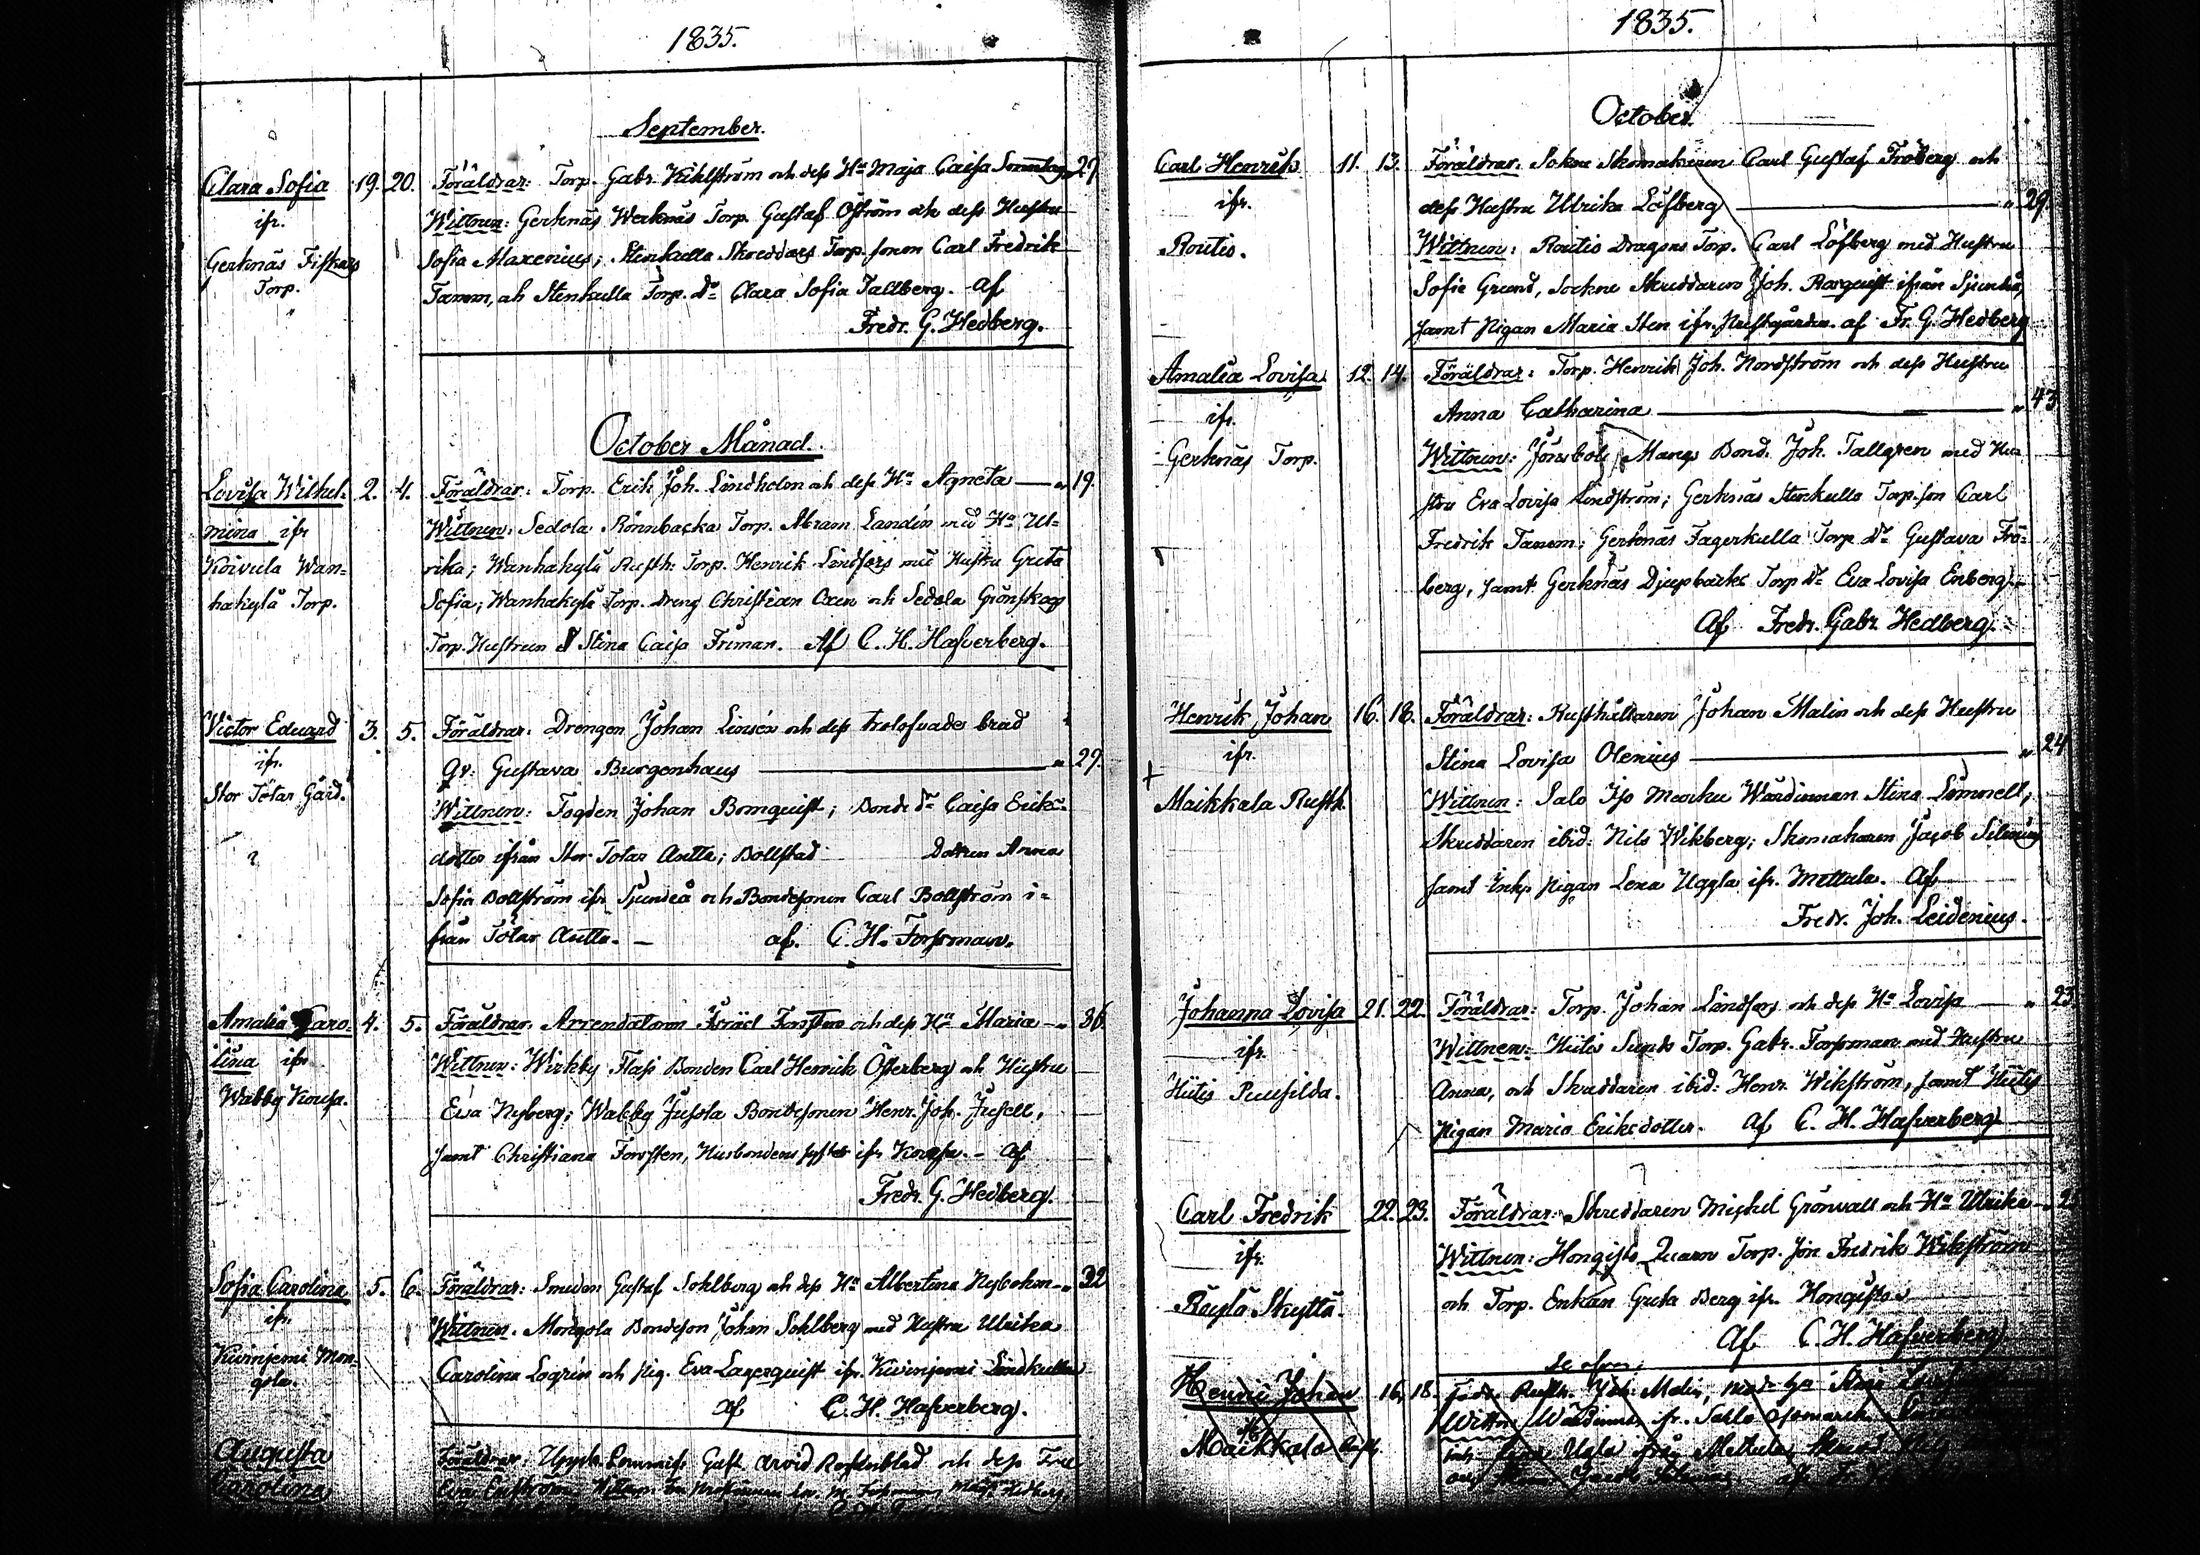 1835.
September.
Clara Sofia 19. 20. Föräldrar: Torp. Gabr. Kihlström och dess Hu Maja Caisa 27
ifr. Wittnen: Gerknäs Werknäs Torp. Gustaf Öström och dess Hustru
Gerknäs Fiskars Sofia Alaxenius; Stenkulla Skreddars Torp. sonen Carl Fredrik
Torp. Tamm, ah Stenkulla Torp. dr Clara Sofia Tallberg. Af
Fredr. G. Hedberg.
October Månad.
Lovisa Wilhel- 2. 4. Föräldrar: Torp. Erik Joh. Lindholm och dess Hu Agneta — " 19.
mina ifr Wittnen: Sedola Rönnbacka Torp. Abram Landén med Hu Ul-
Koivula Wan- rika; Wanhakylä Rusth. Torp. Henrik Lindfors med Hustru Greta
hakylä Torp. Sofia; Wanhakylä Torp. Dreng Christian Oxen och Sedola Grönskog
Torp. Hustrun Stina Caisa Friman. Af C. H. Hafverberg.
Victor Eduard 3. 5. Föräldrar: Drengen Johan Linsén och dess trolofvade brud
ifr. Qv: Gustava Burgenhaus — " 29.
Stor Tötar Gård. Wittnen: Fogden Johan Bomquist; Bonde dr Caisa Eriks-
dotter ifrån Stor Totar Antti; Bollstad Dottren Anna
Sofia Bollström ifr. Sjundeå och Bondesonen Carl Bollström i-
från Tötar Antti. — af. C. H. Forssman.
Amalia Caro- 4. 5. Föräldrar: Arrendatoren Israel Forsten och dess Hu Maria — " 36
lina ifr Wittnen: Wirkby Flass Bonden Carl Henrik Österberg och Hustru
Wabby Kousa. Eva Nyberg; Wabby Jusola Bondesonen Henr. Joh. Jusell,
samt Christiana Forsten, Husbondens syster ifr. Kousa. — Af
Fredr. G. Hedberg.
Sofia Carolina 5. 6. Föräldrar: Smeden Gustaf Sohlberg och dess Hu Albertina Nybohm — " 32
ifr. Wittnen: Mongola Bondeson Johan Sohlberg med Hustru Ulrika
Kuivinjemi Mon- Carolina Logrén och Pig. Eva Lagerquist ifr. Kuivinjemi Lindkulla
gola. af C. H. Hafverberg.
Augusta Föräldrar: Gust. Arvid Rosenblad och dess Fru
Carolina Eva
1835.
October.
Carl Henrik 11. 13. Föräldrar: Sokne Skomakaren Carl Gustaf Froberg och
ifr. dess Hustru Ulrika Löfberg — " 29.
Routio. Wittnen: Routio Dragons Torp. Carl Löfberg med Hustru
Sofia Grund, Sockne Skreddaren Joh. Rosquist ifrån Sjundeå,
samt Pigan Maria Sten ifr. Prestgården. af Fr. G. Hedberg
Amalia Lovisa 12. 14. Föräldrar: Torp. Henrik Joh. Nordström och dess Hustru
ifr. Anna Catharina — " 43
Gerknäs Torp. Wittnen: Jönsböle Mangs Bond. Joh. Tallgren med Hu-
stru Eva Lovisa Lindström; Gerknäs Stenkulla Torp. son Carl
Fredrik Tamm; Gerknäs Fagerkulla Torp dr Gustava Frö-
berg, samt Gerknäs Djupbäcks Torp dr Eva Lovisa Enberg. —
Af Fredr. Gabr. Hedberg.
Henrik Johan 16. 18. Föräldrar: Rusthållaren Johan Malin och dess Hustru
ifr. Stina Lovisa Olenius — " 24
Maikkala Rusth. Wittnen: Salo Iso Marku Wärdinnan Stina Lömnell,
Skreddaren ibid: Nils Wikberg; Skomakaren Jacob Silenius
samt Inhs Pigan Lena Uggla ifr. Mettula. Af
Fredr. Joh. Leidenius.
Johanna Lovisa 21. 22. Föräldrar: Torp. Johan Lindfors och dess Hu Lovisa — " 23
ifr. Wittnen: Hiitis Sunds Torp. Gabr. Forssman med Hustru
Hiitis Puusilda. Anna, och Skreddaren ibid: Henr. Wikström, samt Hiitis
Pigan Maria Eriksdotter. Af C. H. Hafverberg
Carl Fredrik 22. 23. Föräldrar: Skreddaren Michel Grönvall och Hu Ulrika —
ifr. Wittnen: Hongisto Quarn Torp. son Fredrik Wikström
Röylä Skyttä. och Torp. Enkan Greta Berg ifr. Hongisto.
Af C. H. Hafverberg
Henric Johan 16. 18. Rusth. Joh. Malin,
ifr Wittn: Wärdinnan ifr. Salo
Maikkala Rusth. Lena Ugla från Metula,